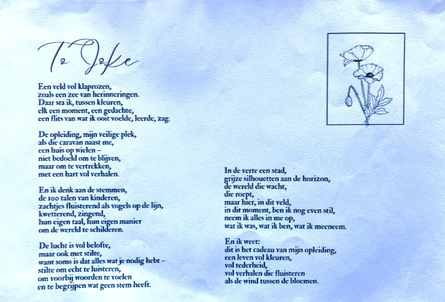 To Joke
Een veld vol klaprozen,
zoals een zee van herinneringen.
Daar sta ik, tussen kleuren,
elk een moment, een gedachte,
een flits van wat ik ooit voelde, leerde, zag.
De opleiding, mijn veilige plek,
als die caravan naast me,
een huis op wielen –
niet bedoeld om te blijven,
maar om te vertrekken,
met een hart vol verhalen.
En ik denk aan de stemmen,
de 100 talen van kinderen,
zachtjes fluisterend als vogels op de lijn,
kwetterend, zingend,
hun eigen taal, hun eigen manier
om de wereld te schilderen.
De lucht is vol belofte,
maar ook met stilte,
want soms is dat alles wat je nodig hebt –
stilte om echt te luisteren,
om voorbij woorden te voelen
en te begrijpen wat geen stem heeft.
In de verte een stad,
grijze silhouetten aan de horizon,
de wereld die wacht,
die roept,
maar hier, in dit veld,
in dit moment, ben ik nog even stil,
neem ik alles in me op,
wat ik was, wat ik ben, wat ik meeneem.
En ik weet:
dit is het cadeau van mijn opleiding,
een leven vol kleuren,
vol tederheid,
vol verhalen die fluisteren
als de wind tussen de bloemen.